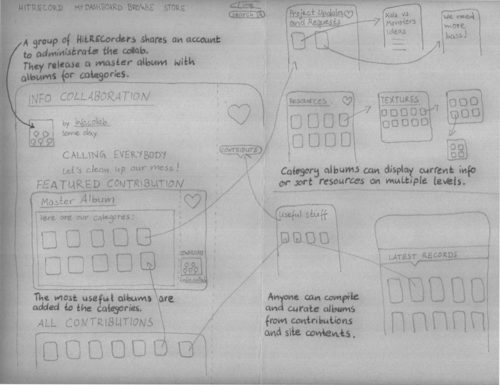 HITRECORD MY DASHBOARD BROWSE STORE
A group of HitRECorders shares an account
to administrate the collab.
They release a master album with
albums for categories.
INFO COLLABORATION
by infocollab
some day
CALLING EVERYBODY
Let's clean up our mess!
CONTRIBUTE
FEATURED CONTRIBUTION
Master Album
Here are our categories:
The most useful albums are
added to the categories.
ALL CONTRIBUTIONS
Project Updates
and Requests
Kids vs.
Monsters
ideas
We need
more
bass!
RESOURCES
TEXTURES
Category albums can display current info
or sort resources on multiple levels.
Useful stuff
LATEST RECORDS
Anyone can compile
and curate albums
from contributions
and site contents.